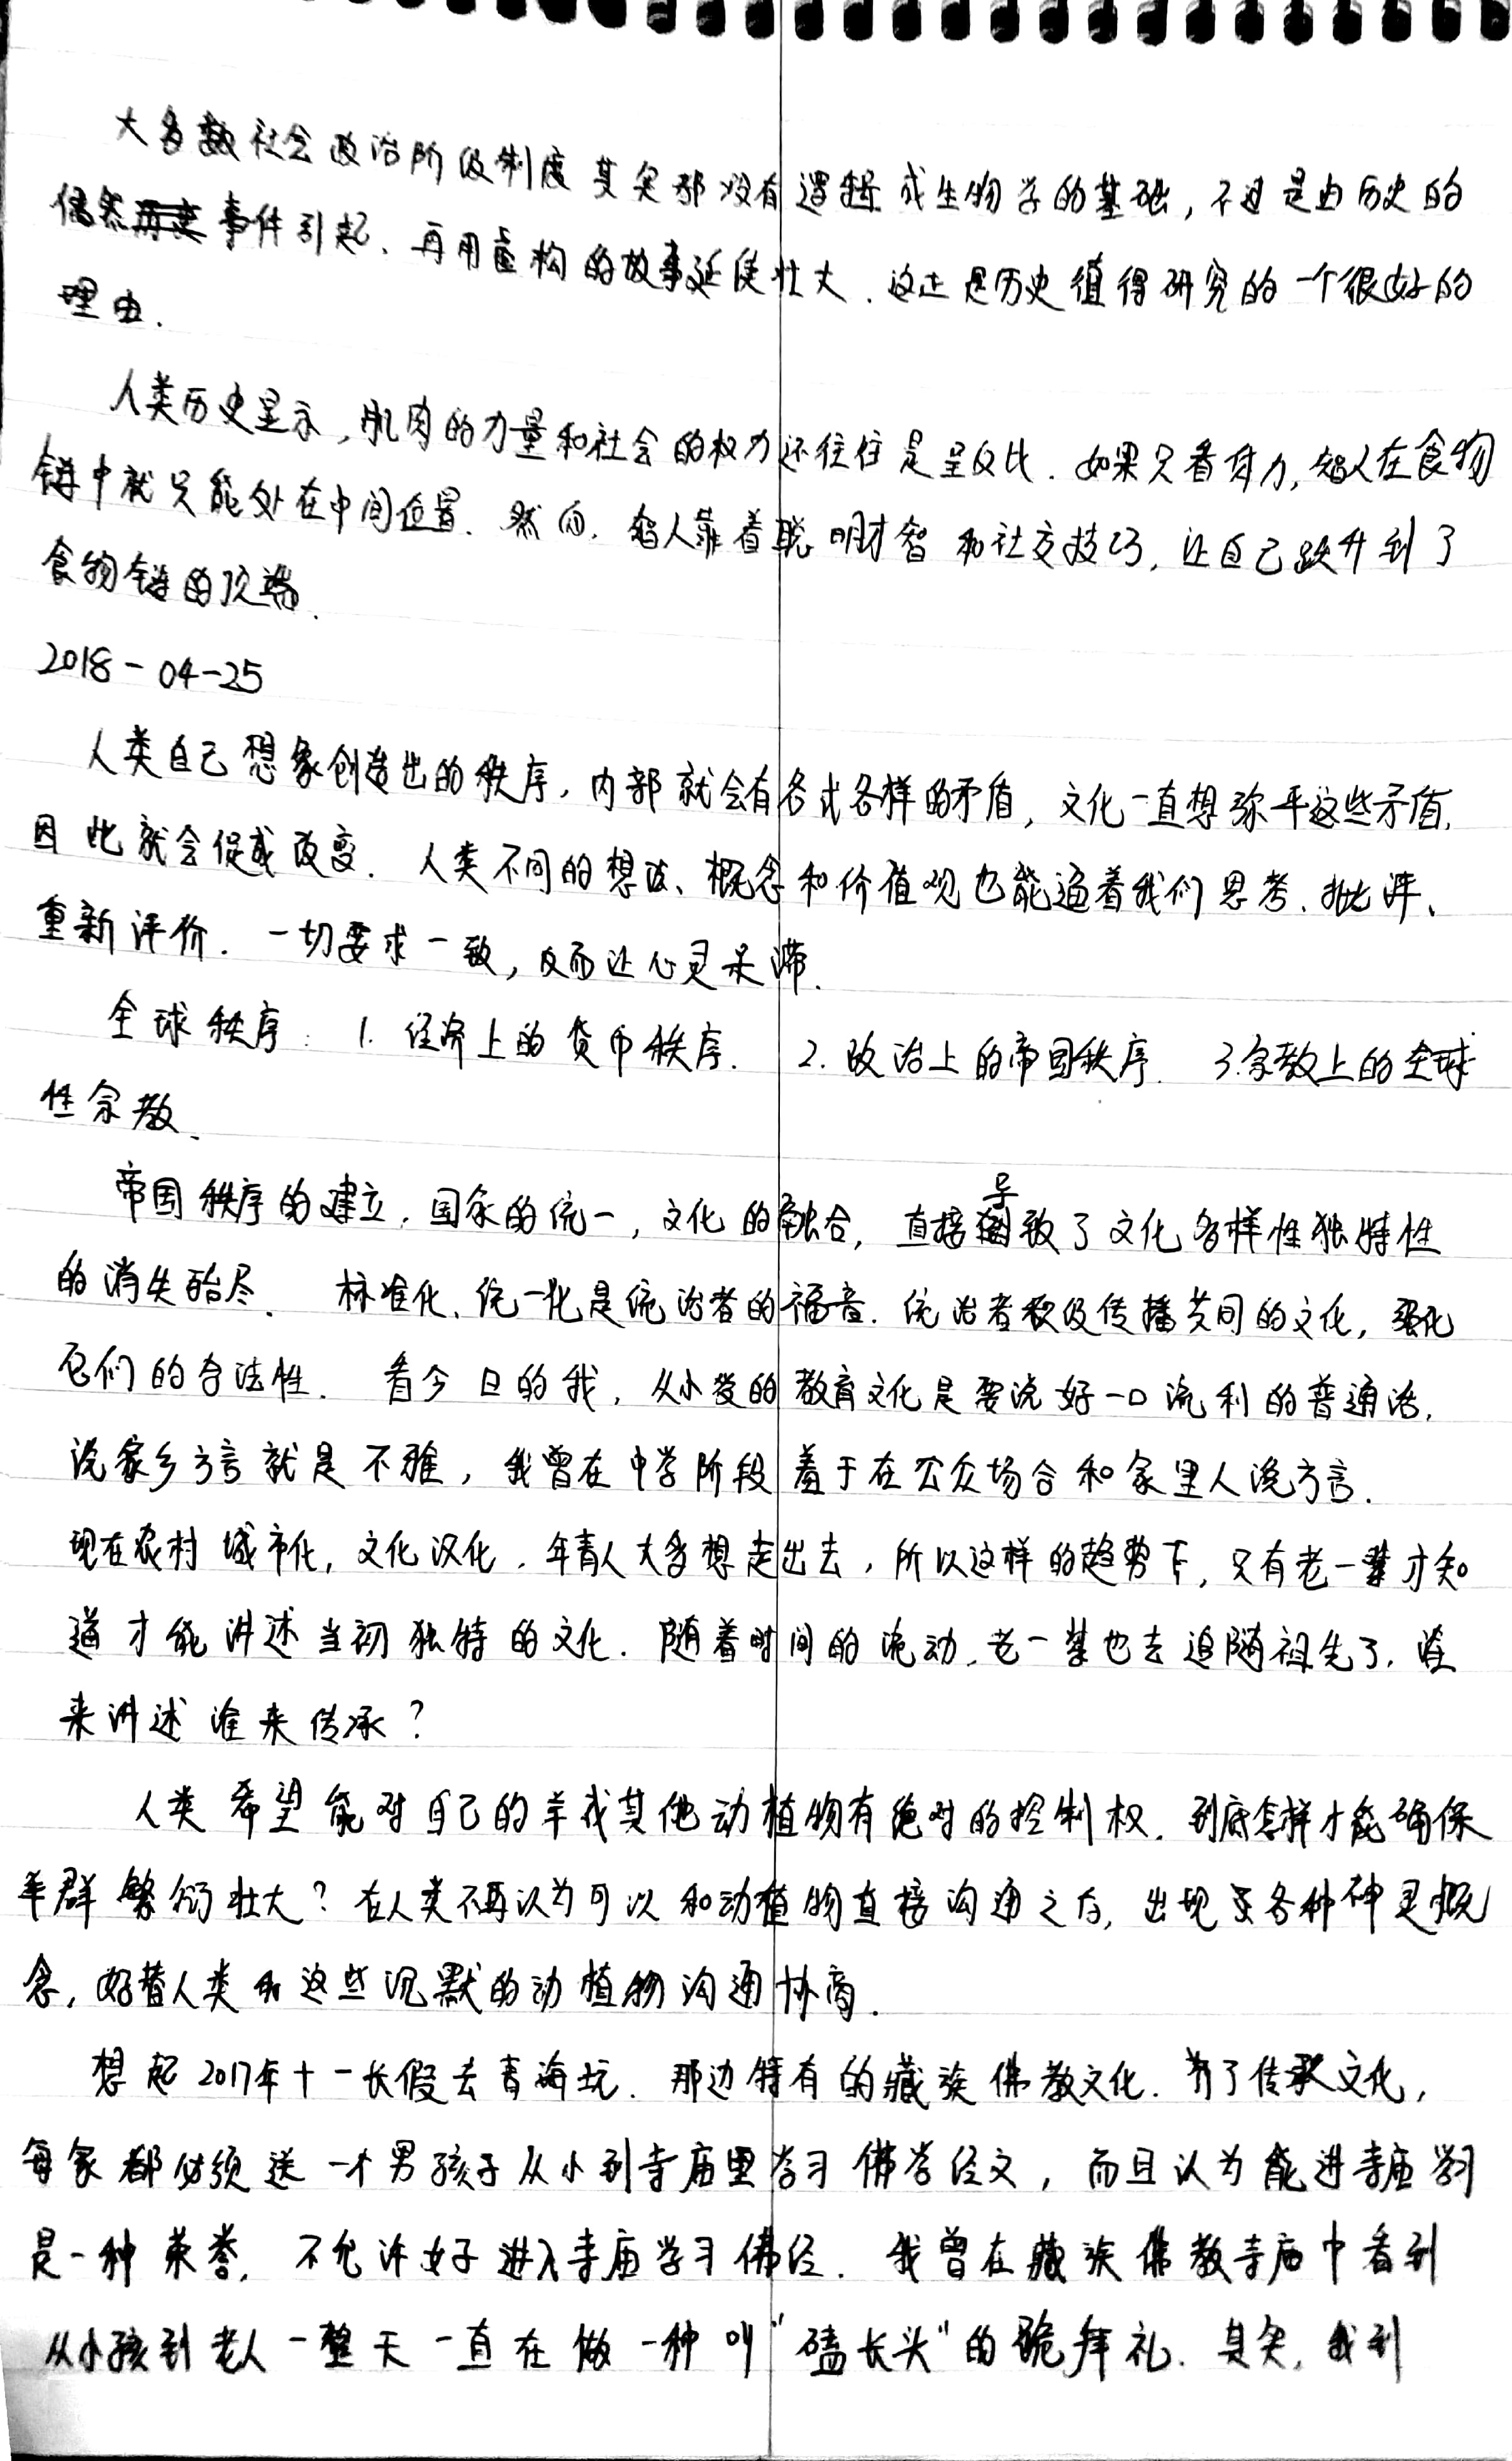 大多数社会政治阶级制度其实都没有逻辑或生物学的基础，不过是由历史的
偶然事件引起、再用虚构的故事延续壮大．这正是历史值得研究的一个很好的
理由．
人类历史显示，肌肉的力量和社会的权力还往往是呈反比．如果只看体力，智人在食物
链中就只能处在中间位置．然而，智人靠着聪明才智和社交技巧，让自己跃升到了
食物链的顶端．
2018-04-25
人类自己想象创造出的秩序，内部就会有各式各样的矛盾，文化一直想弥平这些矛盾，
因此就会促成改变．人类不同的想法、概念和价值观也能逼着我们思考、批评、
重新评价．一切要求一致，反而让心灵呆滞．
全球秩序：1. 经济上的货币秩序．2. 政治上的帝国秩序．3.宗教上的全球
性宗教．
帝国秩序的建立，国家的统一，文化的融合，直接导致了文化多样性独特性
的消失殆尽．标准化、统一化是统治者的福音．统治者积极传播共同的文化，强化
它们的合法性．看今日的我，从小受的教育文化是要说好一口流利的普通话，
说家乡方言就是不雅，我曾在中学阶段羞于在公众场合和家里人说方言．
现在农村城市化，文化汉化，年青人大多想走出去，所以这样的趋势下，只有老一辈才知
道才能讲述当初独特的文化．随着时间的流动，老一辈也去追随祖先了，谁
来讲述谁来传承？
人类希望能对自己的羊或其他动植物有绝对的控制权．到底怎样才能确保
羊群繁衍壮大？在人类不再认为可以和动植物直接沟通之后，出现了各种神灵概
念，好替人类和这些沉默的动植物沟通协商．
想起2017年十一长假去青海玩．那边特有的藏族佛教文化．为了传承文化，
每家都必须送一个男孩子从小到寺庙里学习佛学经文，而且认为能进寺庙学习
是一种荣誉，不允许女子进入寺庙学习佛经．我曾在藏族佛教寺庙中看到
从小孩到老人一整天一直在做一种叫“磕长头”的跪拜礼．其实，我到